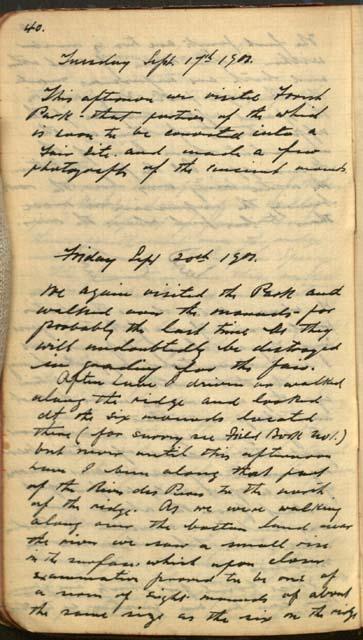 40.
Tuesday Sept. 17th 1901.
This afternoon we visited Forest
Park - that portion of the which
is soon to be converted into a
Fair Site and made a few
photographs of the ancient mounds
Friday Sept 20th 1901.
We again visited the Park and
walked over the mounds for
probably the last time as they
will undoubtedly be destroyed
in grading for the fair.
Often have I driven or walked
along the ridge and looked
at the six mounds located
there (for survey see Field Book No1.)
but never until this afternoon
have I been along that part
of the River des Peres to the north
of the ridge. As we were walking
along over the bottom land near
the river we saw a small rise
in the surface which upon closer
examination proved to be one of
a row of eight mounds of about
the same size as the six on the ridge